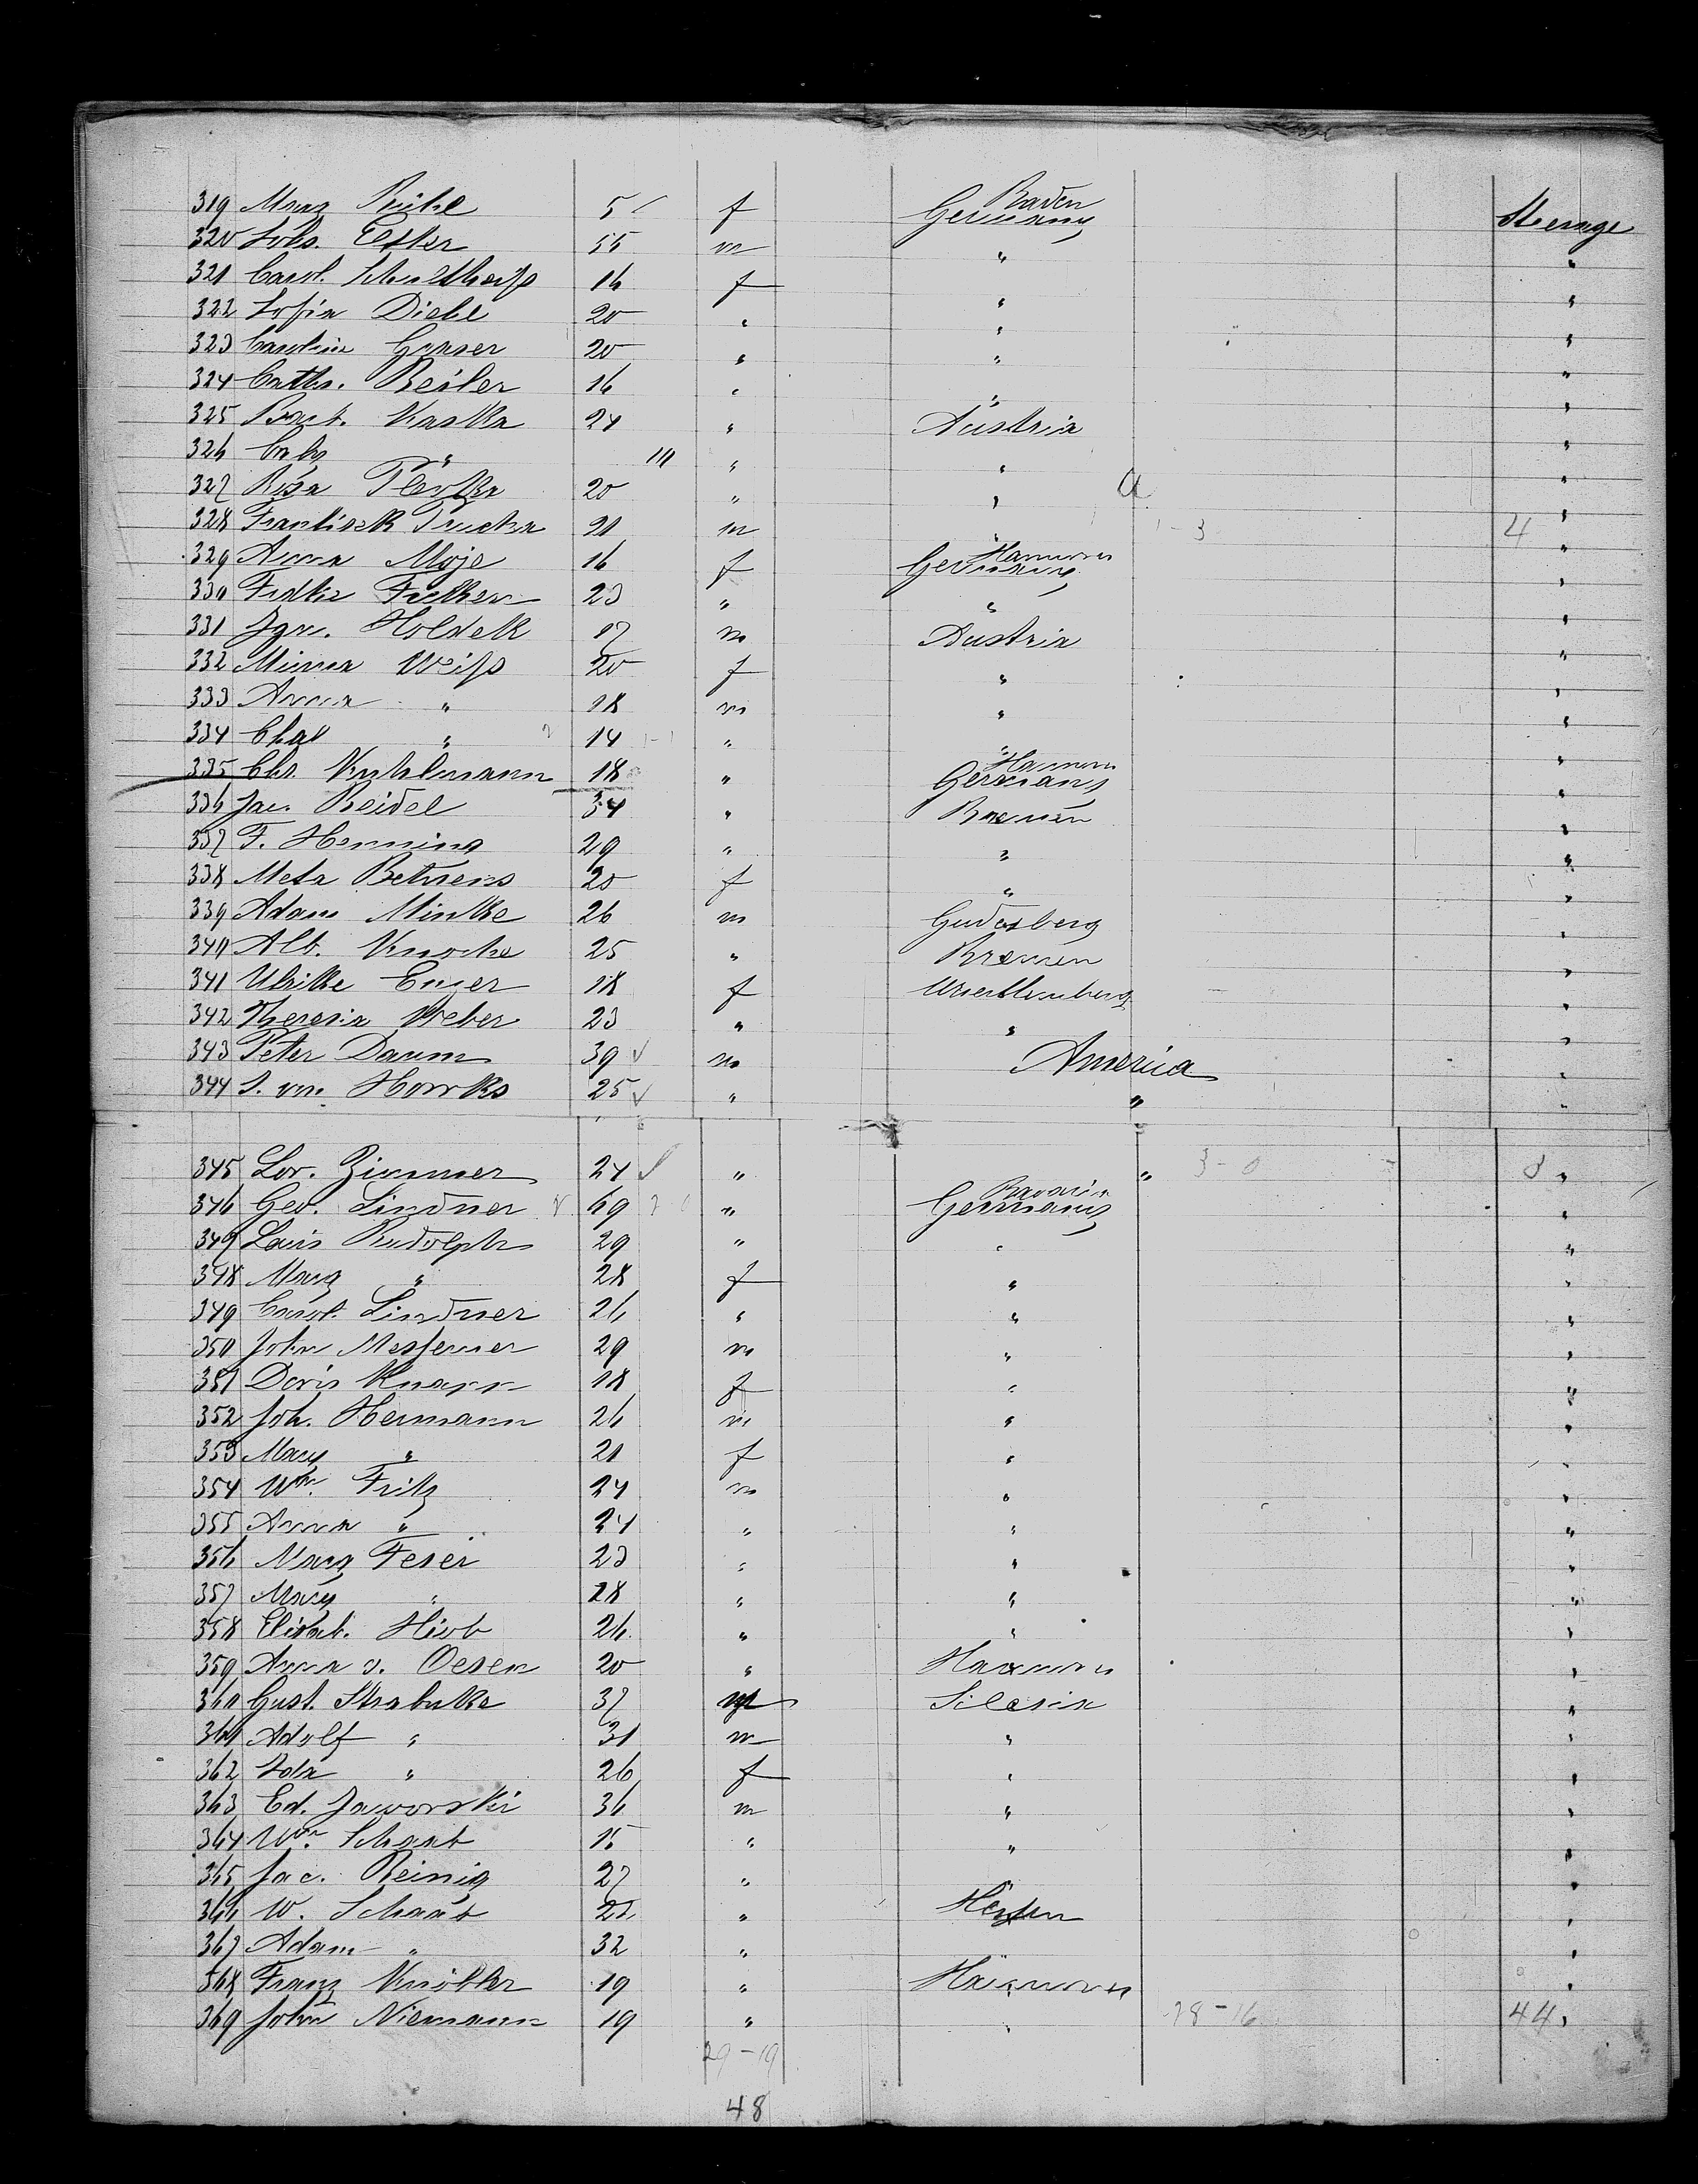 319 Marg Riehl 5 f Baden Germany Steerage
320 Joh. Efler 55 m " "
321 Carol. Schultheifs 16 f " "
322 Sofia Diehl 20 " " "
323 Caroline Ganser 20 " " "
324 Cath. Beiler 16 " " "
325 Kaska 24 " Austria "
326 " " " "
327 Rosa 20 " " "
328 Frantisek 21 m " 1-3 4 "
329 Anna Moje 16 f Hannover Germany "
330 23 " " "
331 Ign. Holdek 17 m Austria "
332 Minna Weifs 20 f " "
333 Anna " 18 m " "
334 " 14 " " "
335 Chr. Kuhlmann 18 " Hannover Germany "
336 Jac. Reidel 34 " Bremen "
337 F. Henning 29 " " "
338 Meta Behrens 20 f " "
339 Adam Mintke 26 m Gudesberg "
340 Alb. Knoche 25 " Bremen "
341 Ulrike Enser 18 f Wuerttemberg "
342 Theresia Weber 23 " " "
343 Peter Daum 39 m America "
344 25 " " "
345 Lor. Zimmer 24 " " 3-0 3 "
346 Geo. Lindner 69 " Bavaria Germany "
347 Louis Rudolph 29 " " "
348 Marg " 28 f " "
349 Carol. Lindner 26 " " "
350 John 29 m " "
351 Doris Knapp 18 f " "
352 Joh. Hermann 26 m " "
353 Mary " 21 f " "
354 Wm. Fritz 24 m " "
355 Anna " 24 " " "
356 Marg Feser 23 " " "
357 Mary " 28 " " "
358 Elisab. 26 " " "
359 Anna v. Oesen 20 " Hannover "
360 Gust. Strabulke 37 m Silesia "
361 Adolf " 31 m " "
362 Ida " 26 f " "
363 Ed. Jaworski 36 m " "
364 Wm. 15 " " "
365 Jac. Reinig 27 " " "
366 W. Schaub " Hessen "
367 Adam " 32 " " "
368 Franz 19 " Hannover "
369 John Niemann 19 " " 28-16 44 "
29-19
48